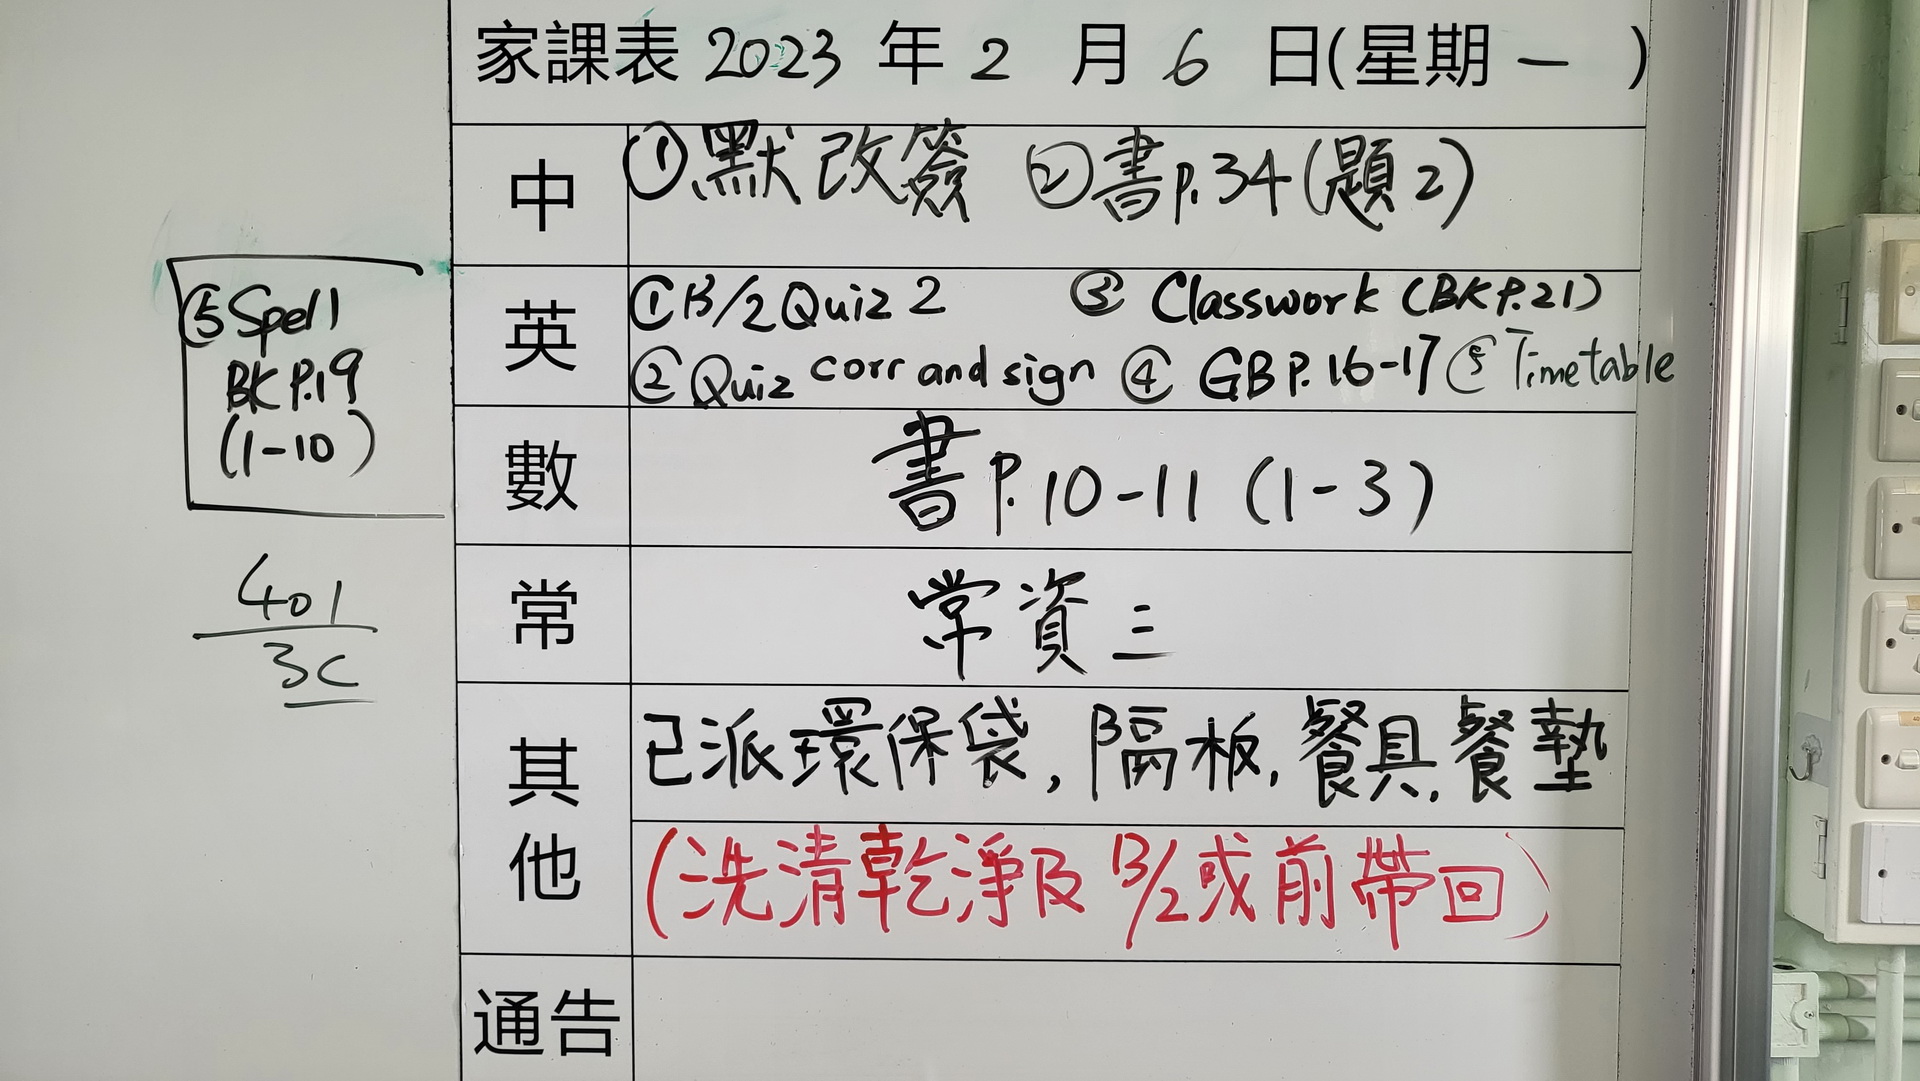 家課表 2023 年 2 月 6 日(星期一 )
中
①默改簽 ②書P.34(題2)
英
①13/2 Quiz 2 ③ Classwork (BK P.21)
② Quiz corr and sign ④ GB P.16-17 ⑤ Timetable
⑤ Spell
BK P.19
(1-10)
數
書P.10-11 (1-3)
401
3C
常
常資三
其他
已派環保袋,隔板,餐具,餐墊
(洗清乾淨及13/2或前帶回)
通告